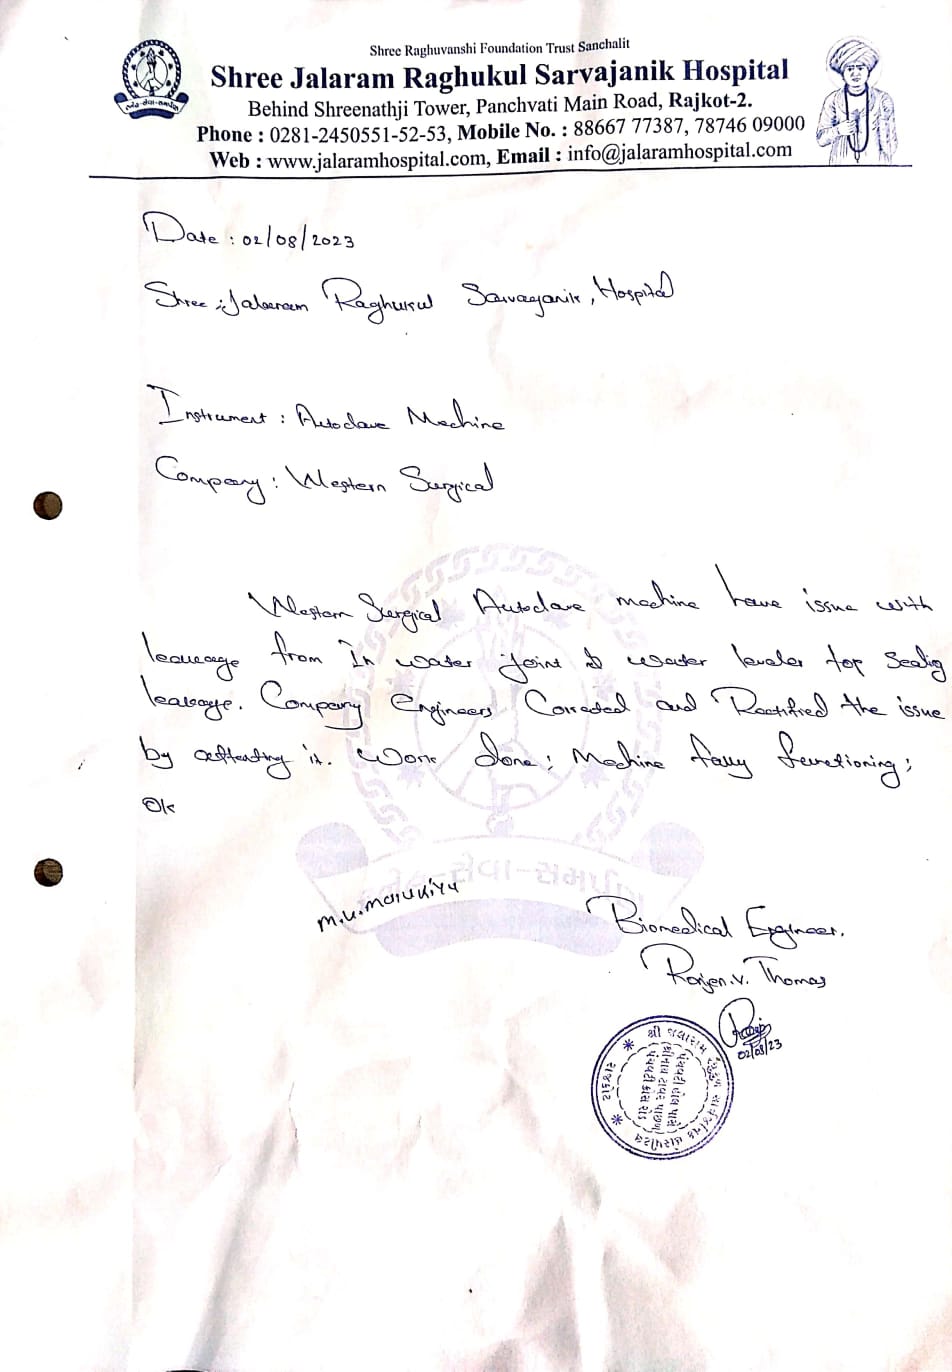 Shree Raghuvanshi Foundation Trust Sanchalit
Shree Jalaram Raghukul Sarvajanik Hospital
Behind Shreenathji Tower, Panchvati Main Road, Rajkot-2.
Phone : 0281-2450551-52-53, Mobile No. : 88667 77387, 78746 09000
Web : www.jalaramhospital.com, Email : info@jalaramhospital.com
Date : 02/08/2023
Shree Jalaram Raghukul Sarvaganik, Hospital
Instrument : Autoclave Machine
Company : Western Surgical
Western Surgical Autoclave machine have issue with
leaucage from In water joint & water leveler top Sealig
leakage. Company Engineers Corrected and Rectified the issue
by it. Work done; Machine fully functioning;
Ok
સેવા-સમર્પણ
M.U.
Biomedical Engineer.
Ronjen.V. Thomas
02/08/23
શ્રી જલારામ રઘુકુળ સાર્વજનિક હોસ્પિટલ
રાજકોટ